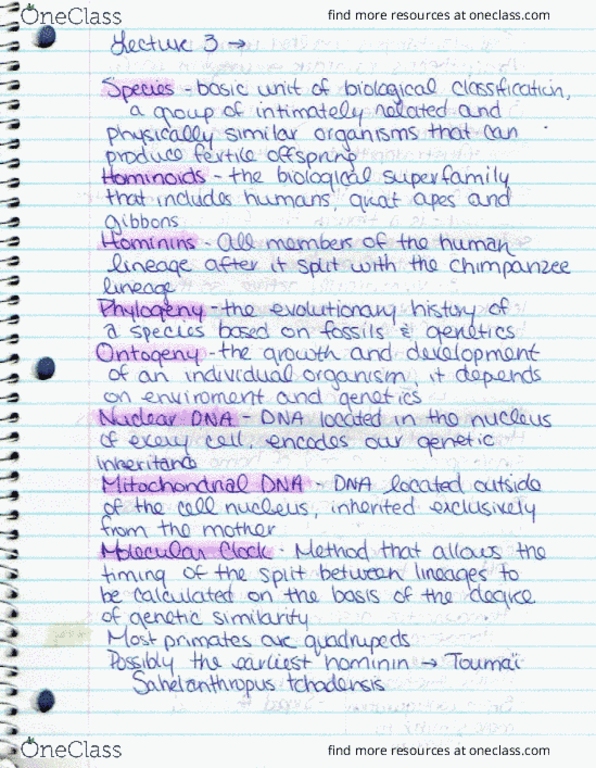 OneClass
find more resources at oneclass.com
Lecture 3 →
Species - basic unit of biological classification,
a group of intimately related and
physically similar organisms that can
produce fertile offspring
Hominoids - the biological superfamily
that includes humans, great apes and
gibbons
Hominins - All members of the human
lineage after it split with the chimpanzee
lineage
Phylogeny - the evolutionary history of
a species based on fossils & genetics
Ontogeny - the growth and development
of an individual organism, it depends
on enviroment and genetics
Nuclear DNA - DNA located in the nucleus
of every cell, encodes our genetic
inheritance
Mitochondrial DNA - DNA located outside
of the cell nucleus, inherited exclusively
from the mother
Molecular Clock - Method that allows the
timing of the split between lineages to
be calculated on the basis of the degree
of genetic similarity
Most primates are quadrupeds
Possibly the earliest hominin → Toumaï
Sahelanthropus tchadensis
OneClass
find more resources at oneclass.com